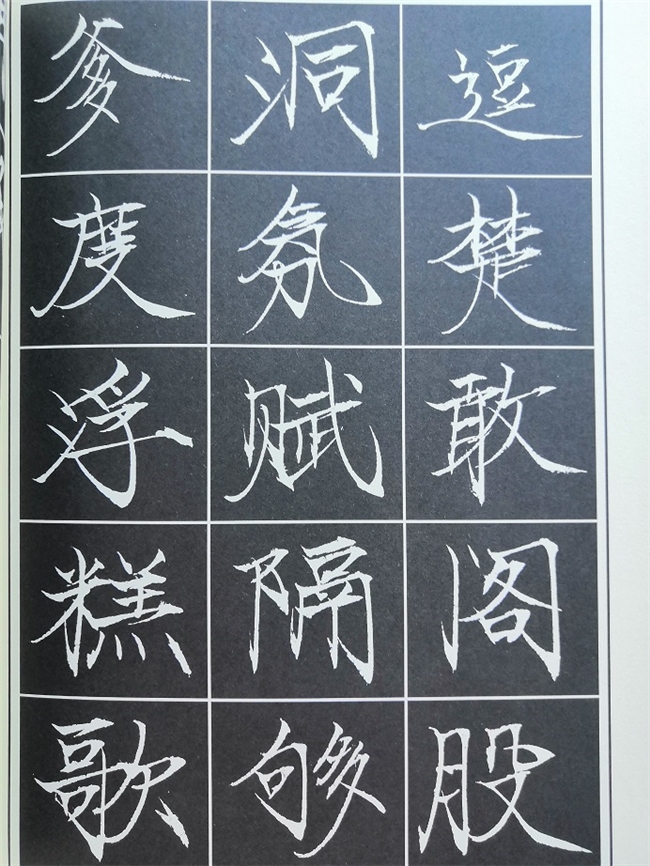 爹洞逗
度氛楚
浮赋敢
糕隔阁
歌够股